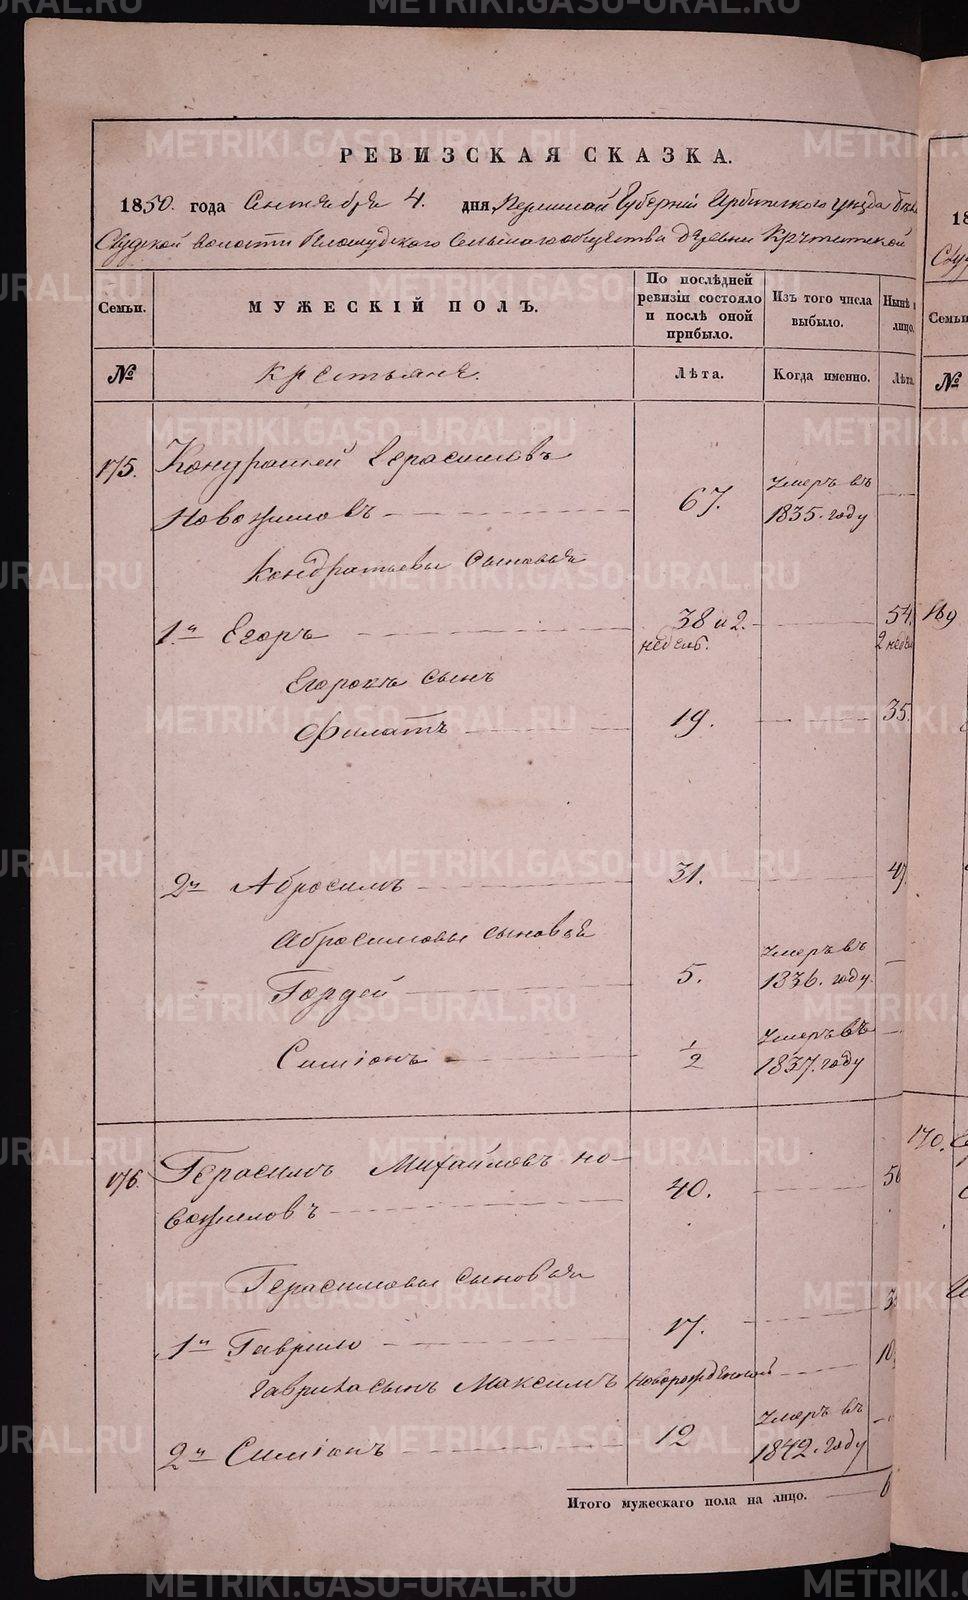 РЕВИЗСКАЯ СКАЗКА.
1850. года Сентября 4. дня, Пермской Губерніи Ирбитского уезда
Слудской волости сельскаго общества деревни
Семьи.
МУЖЕСКІЙ ПОЛЪ.
По послѣдней ревизіи состояло и послѣ оной прибыло.
Изъ того числа выбыло.
Нынѣ
лицо.
№
Крестьяне.
Лѣта.
Когда именно.
Лѣта
175.
Кондратей Герасимовъ
Новожиловъ
67.
Умеръ въ
1835. году
Кондратьевы сыновья
1й Егоръ
38 и 2.
недель.
54.
2 недел
Егоровъ сынъ
Филатъ
19.
35.
2й Абросимъ
31.
47
Абросимовы сыновья
Гордей
5.
Умеръ въ
1836. году.
Симіонъ
1/2
Умеръ въ
1837. году
176.
Герасимъ Михайловъ Но-
вожиловъ
40.
56
Герасимовы сыновья
1й Гаврило
17.
3
Гаврила сынъ Максимъ новорожденной
10
2й Симіонъ
12
Умеръ въ
1842. году
Итого мужескаго пола на лицо.
6
18
Семьи
№
169
170.
METRIKI.GASO-URAL.RU